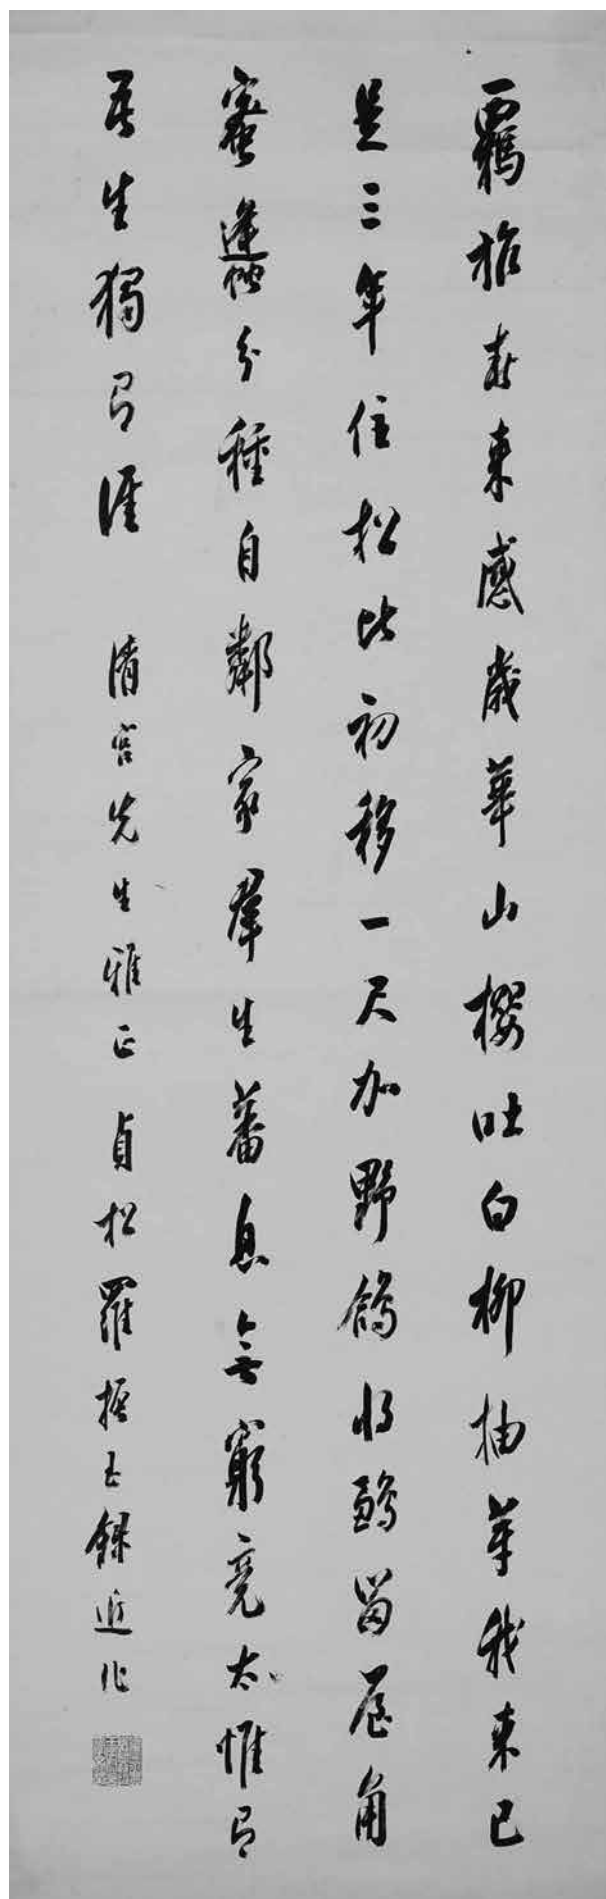 羈旅春來感歲華山櫻吐白柳抽芽我來已
是三年住松比初移一尺加野鴿將雛留屋角
蜜蜂分種自鄰家羣生蕃息無窮竟太惟有
吾生獨有涯 清宮先生雅正 貞松羅振玉錄近作